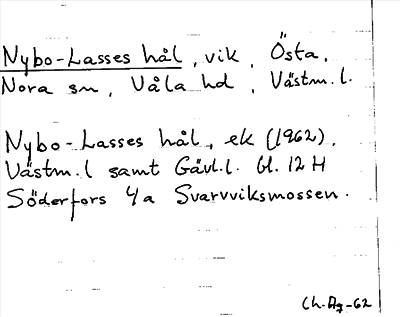 Nybo-Lasses hål, vik, Östa,
Nora sn, Våla hd, Västm. l.
Nybo-Lasses hål, ek (1962),
Västm. l samt Gävl. l. bl. 12 H
Söderfors 4/a Svarvviksmossen.
Ch. Ag -62